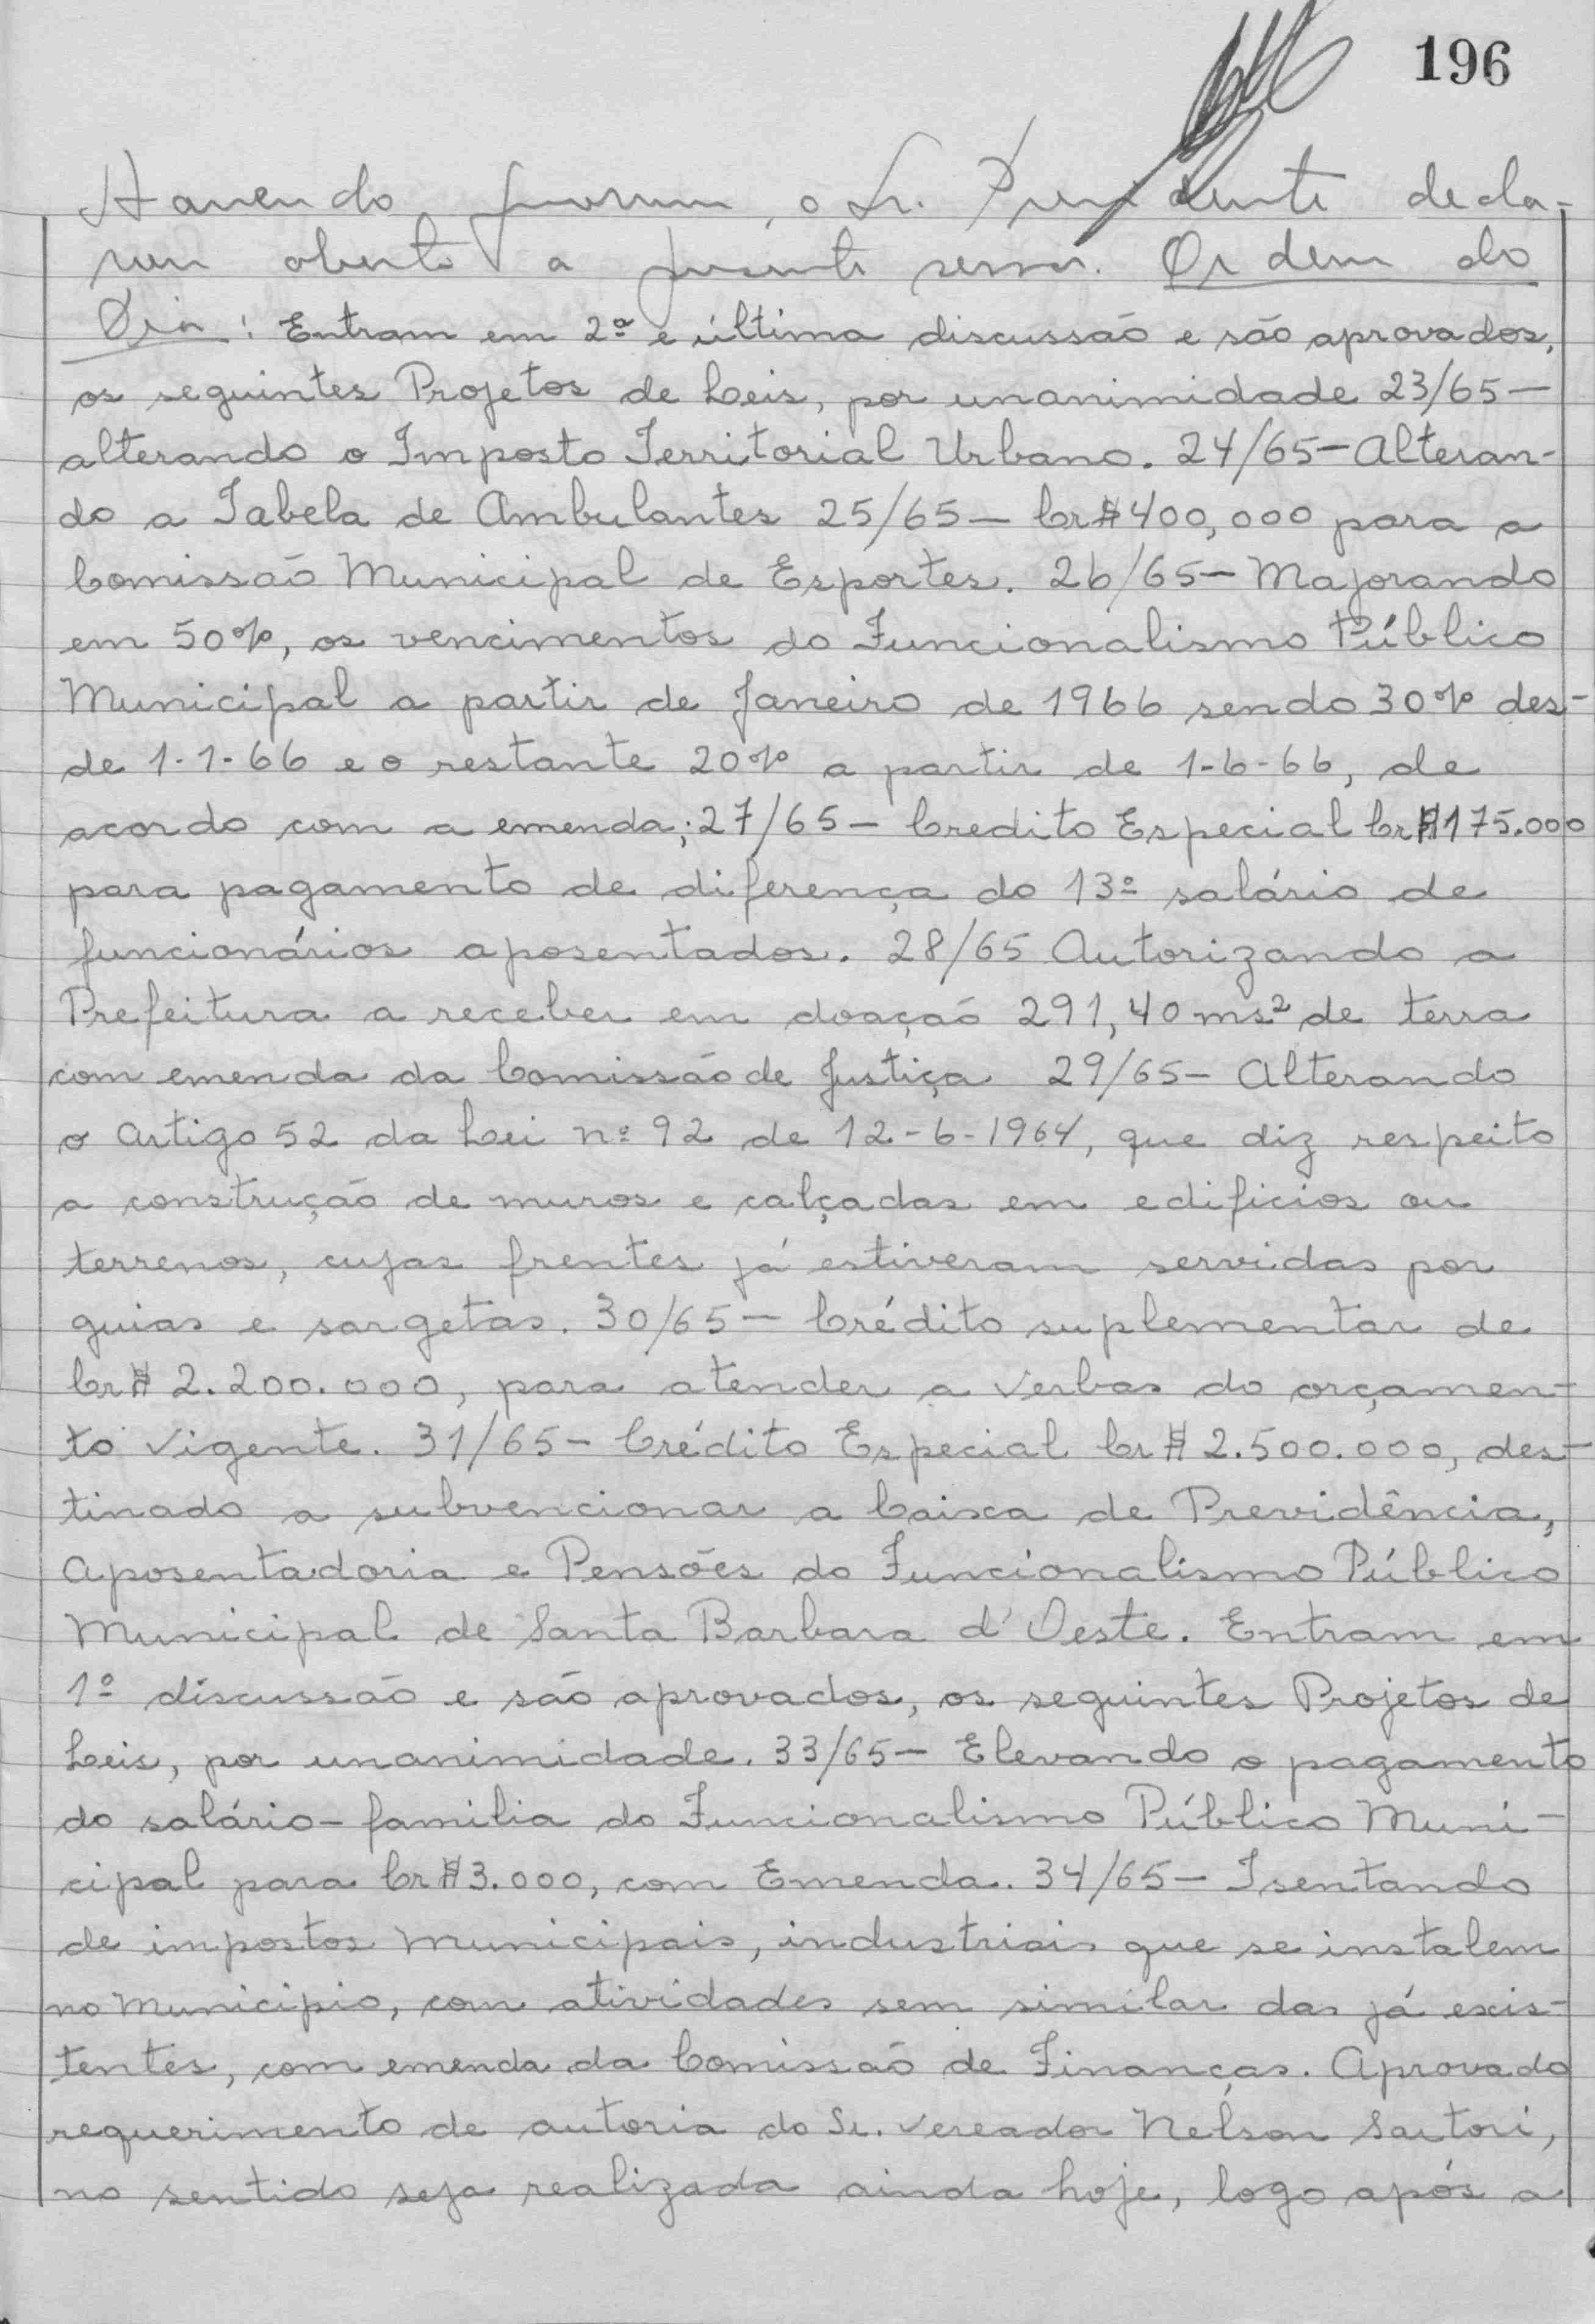 196
Havendo quorum, o Sr. Presidente decla-
rou aberta a presente sessão. Ordem do
Dia: Entram em 2ª e última discussão e são aprovados,
os seguintes Projetos de Leis, por unanimidade 23/65 —
alterando o Imposto Territorial Urbano. 24/65 — Alteran-
do a Tabela de Ambulantes 25/65 — Cr$ 400,000 para a
Comissão Municipal de Esportes. 26/65 — Majorando
em 50%, os vencimentos do Funcionalismo Público
Municipal a partir de Janeiro de 1966 sendo 30% des-
de 1-1-66 e o restante 20% a partir de 1-6-66, de
acordo com a emenda; 27/65 — Credito Especial Cr$ 175.000
para pagamento de diferença do 13º salário de
funcionários aposentados. 28/65 Autorizando a
Prefeitura a receber em doação 291,40 ms² de terra
com emenda da Comissão de Justiça 29/65 — Alterando
o Artigo 52 da Lei nº 92 de 12-6-1964, que diz respeito
a construção de muros e calçadas em edificios ou
terrenos, cujas frentes já estiveram servidas por
guias e sargetas. 30/65 — Crédito suplementar de
Cr$ 2.200.000, para atender a verbas do orçamen-
to vigente. 31/65 — Crédito Especial Cr$ 2.500.000, des-
tinado a subvencionar a Caixa de Previdência,
Aposentadoria e Pensões do Funcionalismo Público
Municipal de Santa Barbara d'Oeste. Entram em
1º discussão e são aprovados, os seguintes Projetos de
Leis, por unanimidade. 33/65 — Elevando o pagamento
do salário-familia do Funcionalismo Público Muni-
cipal para Cr$ 3.000, com Emenda. 34/65 — Isentando
de impostos municipais, industriais que se instalem
no Municipio, com atividades sem similar das já exis-
tentes, com emenda da Comissão de Finanças. Aprovado
requerimento de autoria do Sr. Vereador Nelson Sartori,
no sentido seja realizada ainda hoje, logo após a